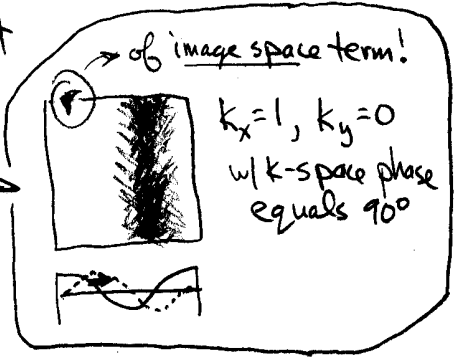 of image space term!
kx=1, ky=0
w/ k-space phase
equals 90°